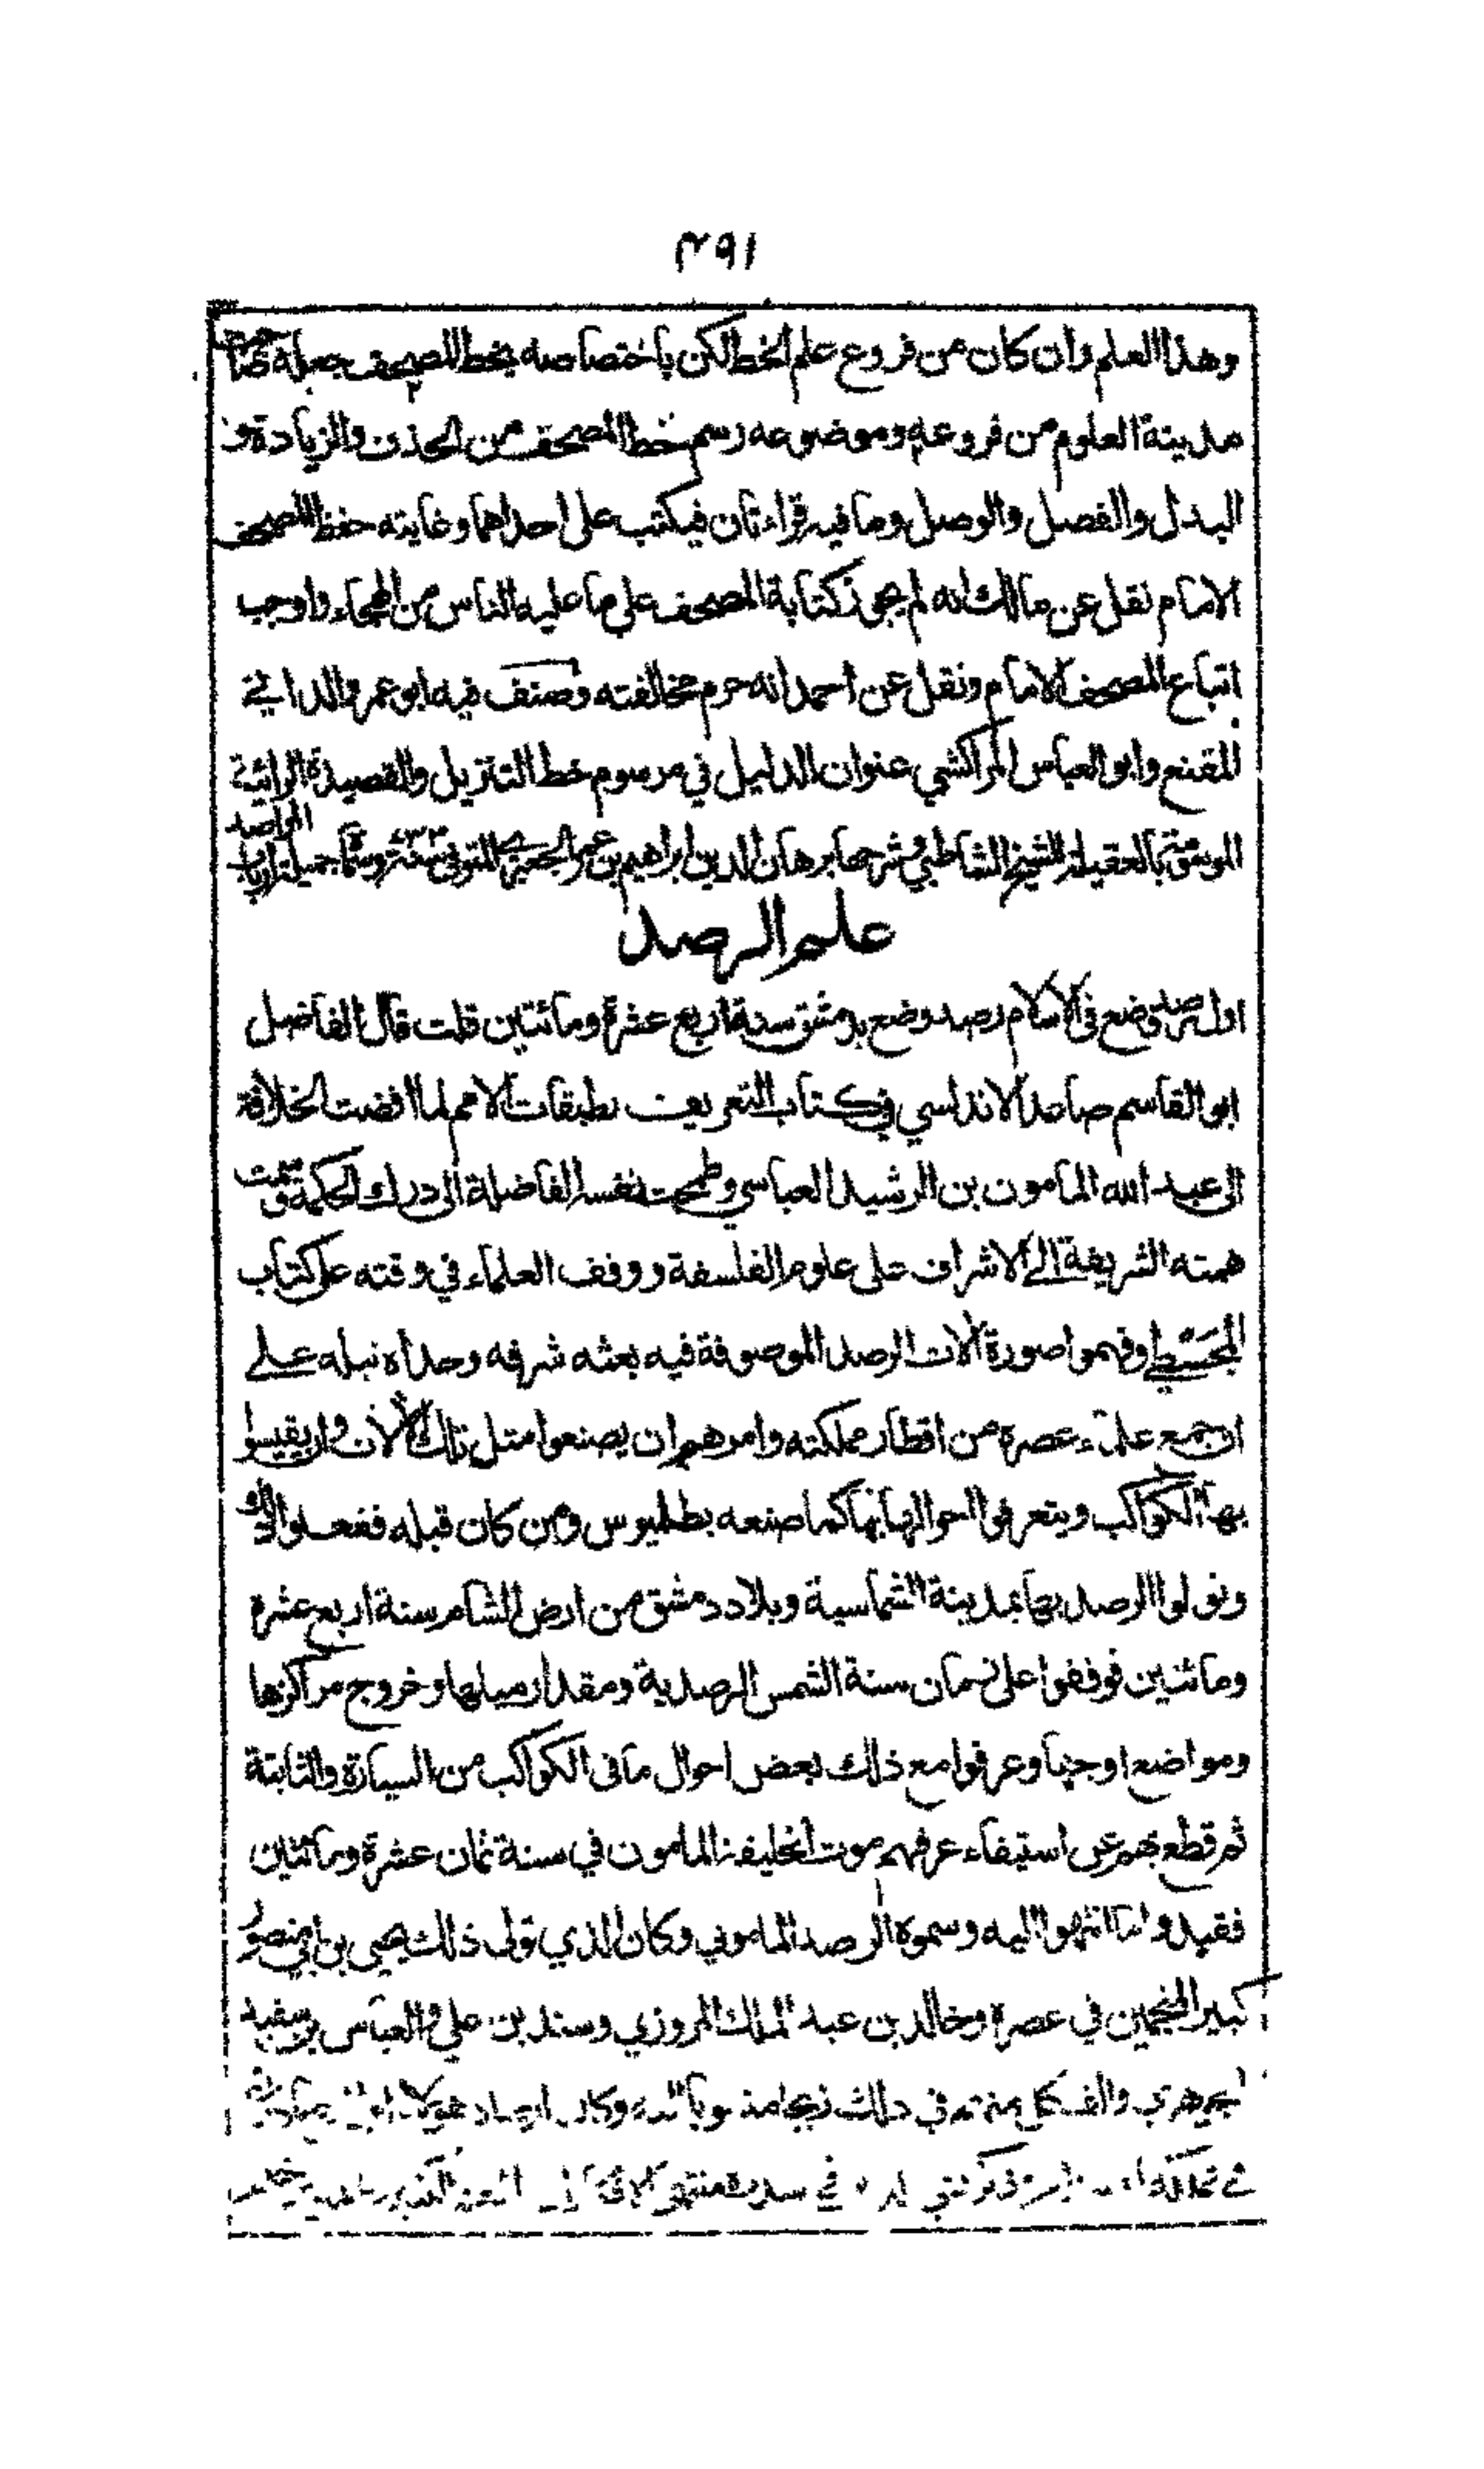 ٤٩١
وهذا العلم وان كان من فروع علم الخط لكن باختصاصه بخط المصحف جعله صاحب
مدينة العلوم من فروعه وموضوعه رسم خط المصحف من الحذف والزيادة و
البدل والفصل والوصل وما فيه قراءتان فيكتب على احداهما وغايته حفظ المصحف
الامام نقل عن مالك انه لم يجوز كتابة المصحف على ما عليه الناس من الهجاء واوجب
اتباع المصحف الامام ونقل عن احمد انه حرم مخالفته وصنف فيه ابو عمرو الداني
المقنع وابو العباس المراكشي عنوان الدليل في مرسوم خط التنزيل والقصيدة الرائية
الموسومة بالعقيلة للشيخ الشاطبي وشرحها برهان الدين ابراهيم بن عمر الجعبري المتوفى سنة جميلة ارباب المراصد
علم الرصد
اول رصد وضع في الاسلام رصد وضع بدمشق سنة اربع عشرة ومائتين قلت قال الفاضل
ابو القاسم صاعد الاندلسي في كتاب التعريف بطبقات الامم لما افضت الخلافة
الى عبد الله المامون بن الرشيد العباسي وطمحت نفسه الفاضلة الى درك الحكمة وسمت
همته الشريفة الى الاشراف على علوم الفلسفة ووقف العلماء في وقته على كتاب
المجسطي وفهموا صورة الات الرصد الموصوفة فيه بعثه شرفه وحداه نبله على
ان جمع علماء عصره من اقطار مملكته وامرهم ان يصنعوا مثل تلك الالات وان يقيسوا
بها الكواكب ويتعرفوا احوالها بها كما صنعه بطلميوس ومن كان قبله ففعلوا ذلك
وتولوا الرصد بها بمدينة الشماسية وبلاد دمشق من ارض الشام سنة اربع عشرة
ومائتين فوقفوا على زمان سنة الشمس الرصدية ومقدار ميلها وخروج مراكزها
ومواضع اوجها وعرفوا مع ذلك بعض احوال ما في الكواكب من السيارة والثابتة
ثم قطع بهم عن استيفاء غرضهم موت الخليفة المامون في سنة ثمان عشرة ومائتين
فقيدوا ما انتهوا اليه وسموه الرصد الماموني وكان الذي تولى ذلك يحيى بن ابي منصور
كبير المنجمين في عصره وخالد بن عبد الملك المروزي وسند بن علي والعباس بن سعيد
الجوهري والف كل منهم في ذلك زيجا منسوبا اليه وكان ارصاد هؤلاء اول
في